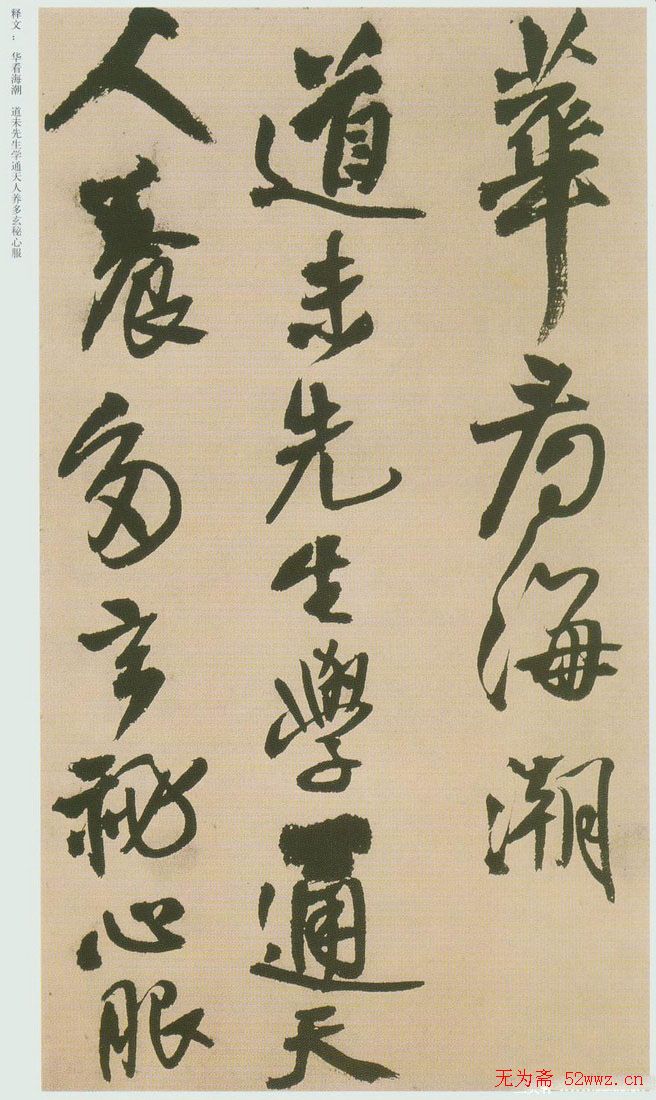 華看海潮
道未先生學通天
人養多玄秘心服
释文： 华看海潮 道未先生学通天人养多玄秘心服
无为斋 52wwz.cn